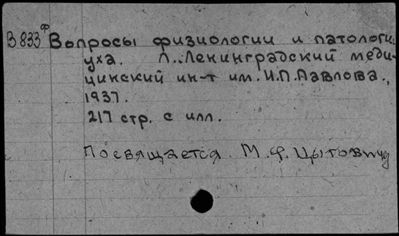 В 833 ф Вопросы физиологии и патологи
уха. Л. Ленинградский меди-
цинский ин-т им. И.П. Павлова.,
1937.
217 стр. с илл.
Посвящается М. Ф. Цытовичу